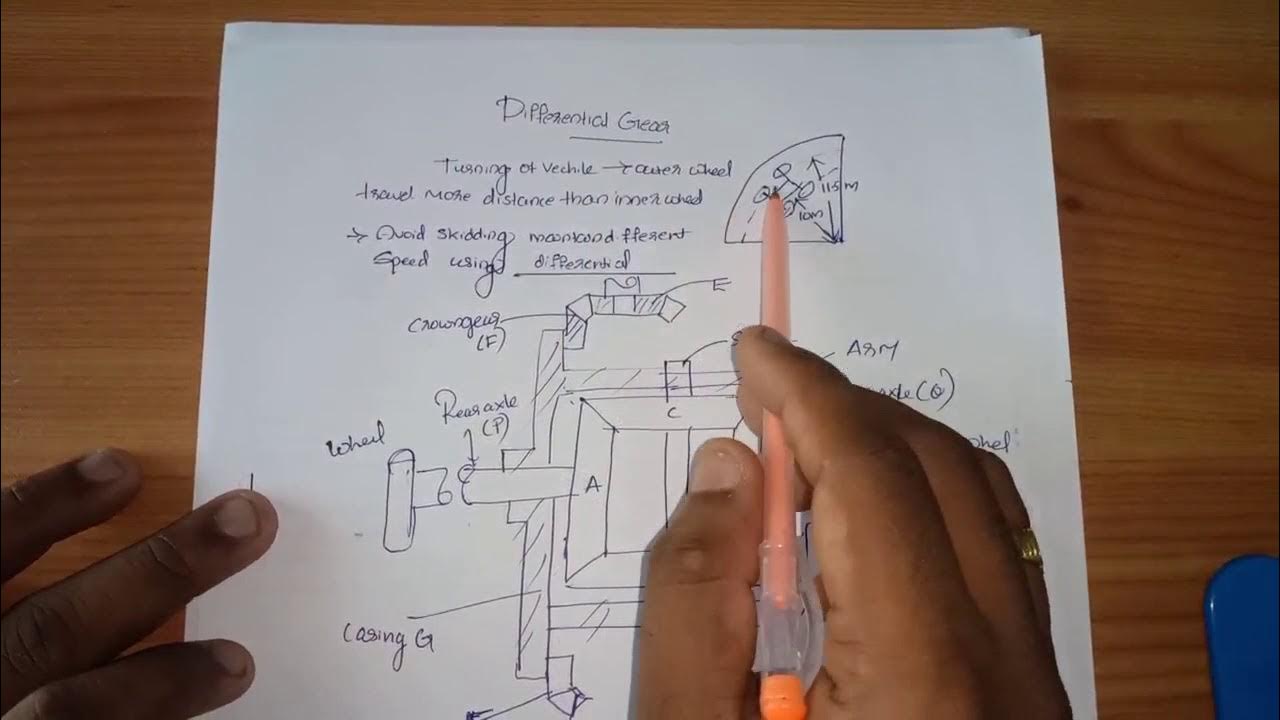 Differential Gear
Turning of Vechile → outer wheel
travel more distance than inner wheel
→ Avoid skidding, maintain different
Speed using differential
11.5 m
10m
E
Crown gear
(F)
Arm
Rear axle
(P)
axle (Q)
Wheel
Wheel
C
A
Casing G